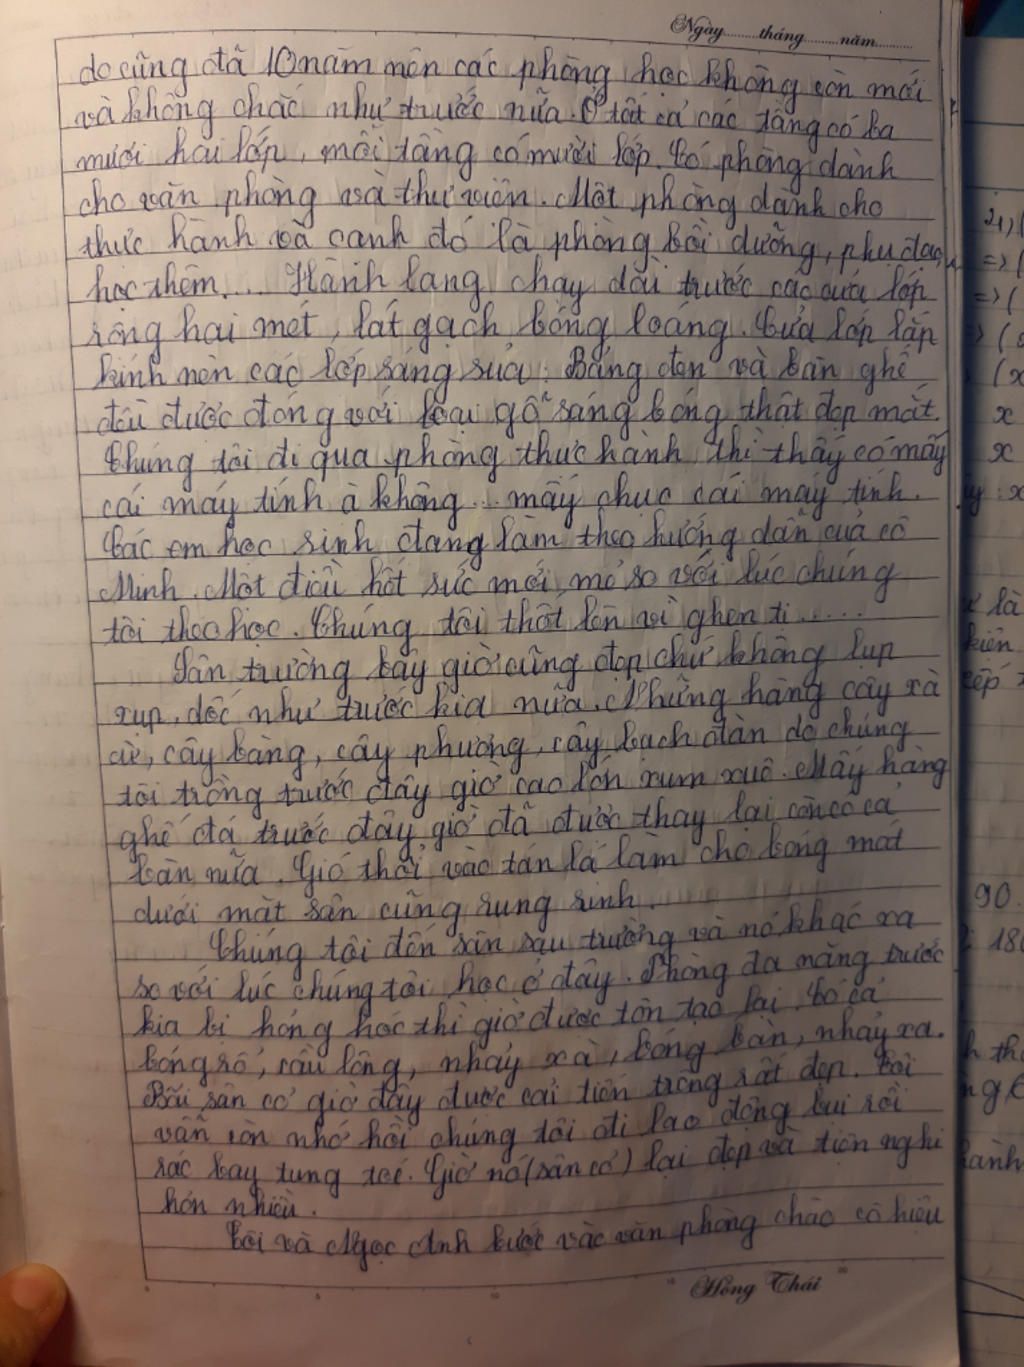 Ngày........tháng........năm.........
do cũng đã 10 năm nên các phòng học không còn mới
và không chắc như trước nữa. Ở tất cả các tầng có ba
mươi hai lớp, mỗi tầng có mười lớp. Có phòng dành
cho văn phòng và thư viện. Một phòng dành cho
thực hành và cạnh đó là phòng bồi dưỡng, phụ đạo,
học thêm.... Hành lang chạy dài trước các cửa lớp
rộng hai mét, lát gạch bóng loáng. Cửa lớp lắp
kính nên các lớp sáng sủa. Bảng đen và bàn ghế
đều được đóng với loại gỗ sáng bóng thật đẹp mắt.
Chúng tôi đi qua phòng thực hành thì thấy có mấy
cái máy tính à không... mấy chục cái máy tính.
Các em học sinh đang làm theo hướng dẫn của cô
Minh. Một điều hết sức mới mẻ so với lúc chúng
tôi theo học. Chúng tôi thốt lên vì ghen tị.....
Sân trường bây giờ cũng đẹp chứ không lụp
xụp, dốc như trước kia nữa. Những hàng cây xà
cừ, cây bàng, cây phượng, cây bạch đàn do chúng
tôi trồng trước đây giờ cao lớn xum xuê. Mấy hàng
ghế đá trước đây giờ đã được thay lại còn có cả
bàn nữa. Gió thổi vào tán lá làm cho bóng mát
dưới mặt sân cũng rung rinh.
Chúng tôi đến sân sau trường và nó khác xa
so với lúc chúng tôi học ở đây. Phòng đa năng trước
kia bị hỏng hóc thì giờ được tôn tạo lại. Có cả
bóng rổ, cầu lông, nhảy xà, bóng bàn, nhảy xa.
Bãi sân cỏ giờ đây được cải tiến trông rất đẹp. Tôi
vẫn còn nhớ hồi chúng tôi đi lao động bụi rồi
rác bay tung toé. Giờ nó (sân cỏ) lại đẹp và tiện nghi
hơn nhiều.
Tôi và Ngọc Anh bước vào văn phòng chào cô hiệu
Hồng Thái